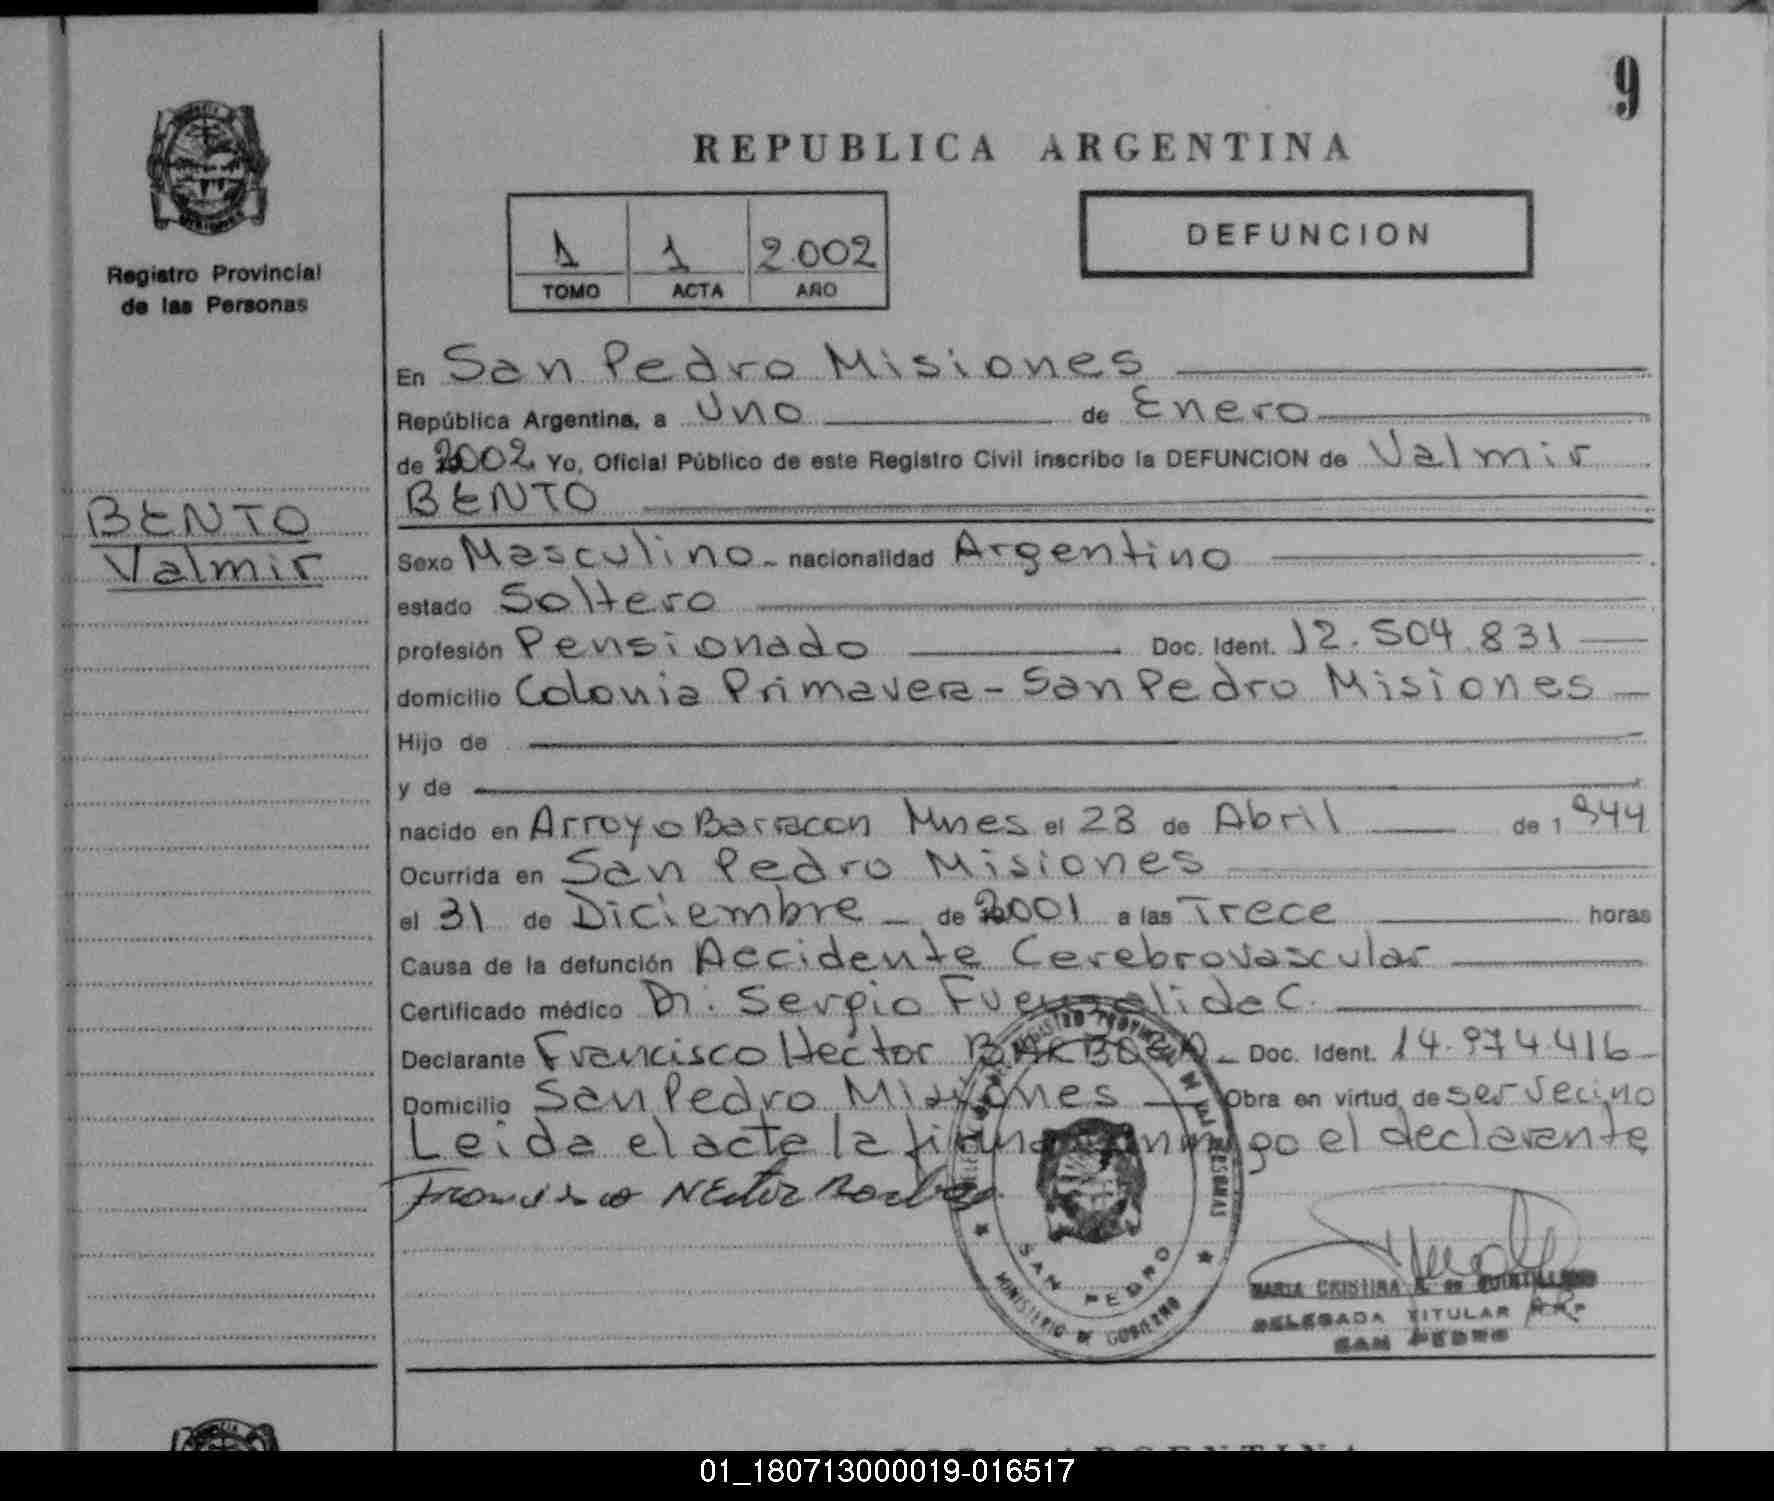 9
REPUBLICA ARGENTINA
1 1 2.002
TOMO ACTA AÑO
DEFUNCION
Registro Provincial
de las Personas
BENTO
Valmir
En San Pedro Misiones
República Argentina, a Uno de Enero
de 2002 Yo, Oficial Público de este Registro Civil inscribo la DEFUNCION de Valmir
BENTO
Sexo Masculino nacionalidad Argentino
estado Soltero
profesión Pensionado Doc. Ident. 12.504.831
domicilio Colonia Primavera - San Pedro Misiones
Hijo de
y de
nacido en Arroyo Barracon Mnes el 23 de Abril de 1944
Ocurrida en San Pedro Misiones
el 31 de Diciembre de 2001 a las Trece horas
Causa de la defunción Accidente Cerebrovascular
Certificado médico Dr. Sergio C.
Declarante Francisco Hector BARBOZA Doc. Ident. 14.974.416
Domicilio San Pedro Misiones Obra en virtud de ser vecino
Leida el acta la firma conmigo el declarante
Francisco
REGISTRO PROVINCIAL DE LAS PERSONAS
SAN PEDRO
MINISTERIO DE GOBIERNO
MARIA CRISTINA
DELEGADA TITULAR
SAN PEDRO
REPUBLICA ARGENTINA
01_180713000019-016517